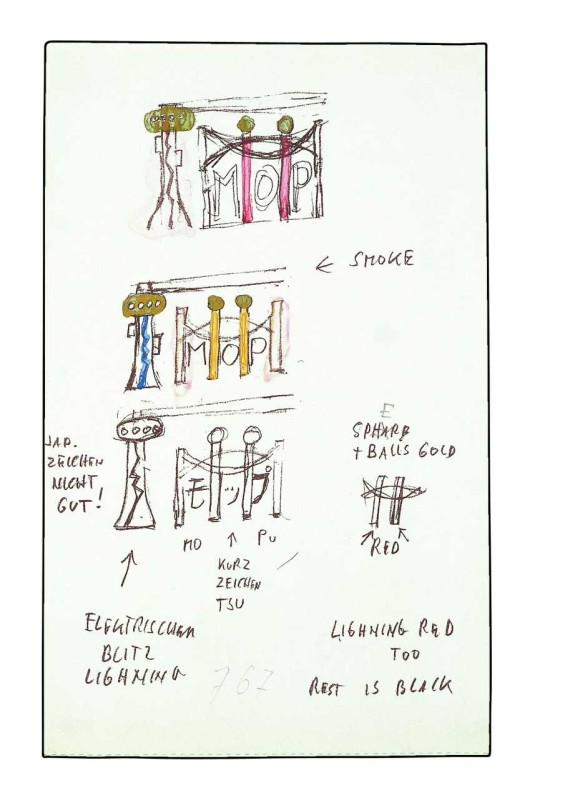 MOP
← SMOKE
MOP
JAP.
ZEICHEN
NICHT
GUT!
モップ
MO ↑ PU
KURZ
ZEICHEN
TSU
E
SPHARE
+ BALLS GOLD
RED
ELEKTRISCHEN
BLITZ
LIGHNING
LIGHNING RED
TOO
767
REST IS BLACK